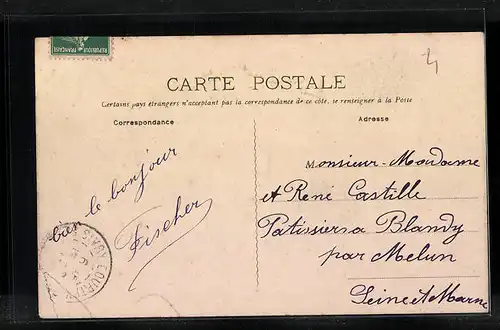 REPUBLIQUE FRANÇAISE
4
CARTE POSTALE
Certains pays étrangers n'acceptant pas la correspondance de ce côté, se renseigner à la Poste
Correspondance
Adresse
bien le bonjour
Fischer
Monsieur Madame
et René Castille
Patissiers a Blandy
par Melun
Seine et Marne